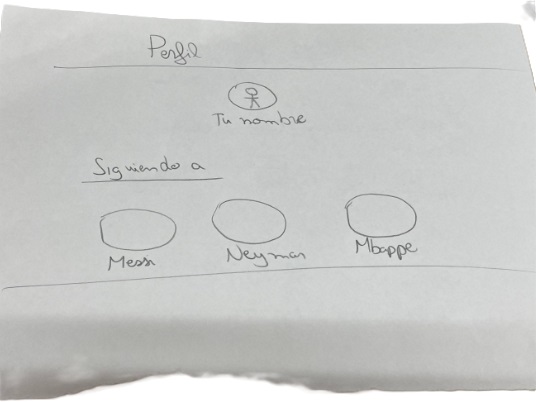 Perfil
Tu nombre
Siguiendo a
Messi
Neymar
Mbappe